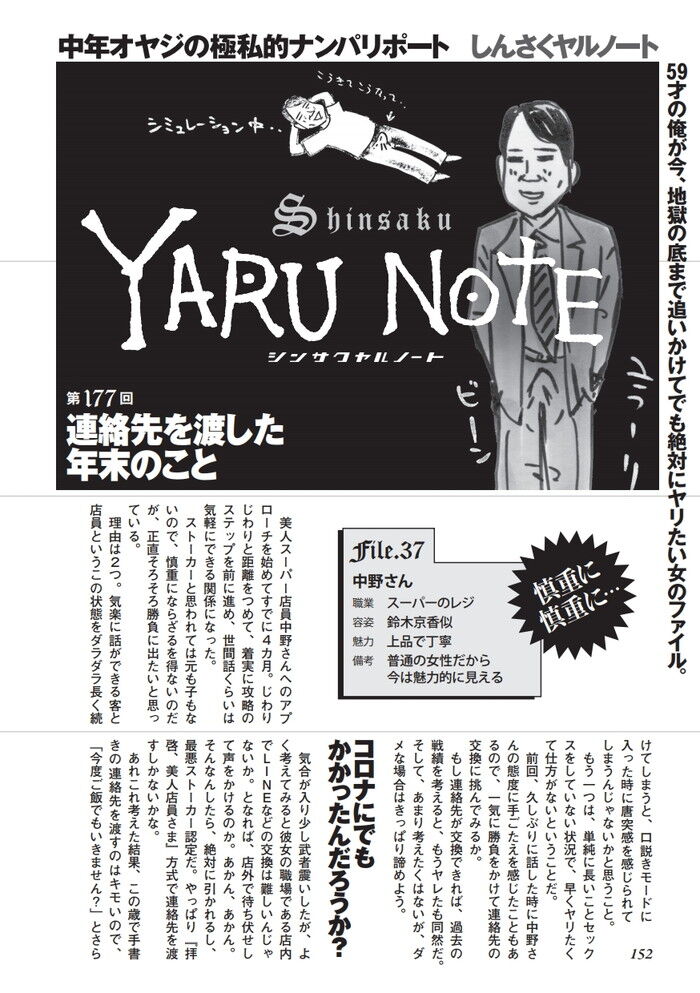 中年オヤジの極私的ナンパリポート　しんさくヤルノート
59才の俺が今、地獄の底まで追いかけてでも絶対にヤリたい女のファイル。
シミュレーション中‥
こうきてこうなって‥
Shinsaku
YARU NOTE
シンサクヤルノート
ビーン
ユラ〜リ
第177回
連絡先を渡した
年末のこと
慎重に
慎重に…
File.37
中野さん
職業　スーパーのレジ
容姿　鈴木京香似
魅力　上品で丁寧
備考　普通の女性だから
今は魅力的に見える
美人スーパー店員中野さんへのアプ
ローチを始めてすでに４カ月。じわり
じわりと距離をつめて、着実に攻略の
ステップを前に進め、世間話くらいは
気軽にできる関係になった。
ストーカーと思われては元も子もな
いので、慎重にならざるを得ないのだ
が、正直そろそろ勝負に出たいと思っ
ている。
理由は２つ。気楽に話ができる客と
店員というこの状態をダラダラ長く続
けてしまうと、口説きモードに
入った時に唐突感を感じられて
しまうんじゃないかと思うこと。
もう一つは、単純に長いことセック
スをしていない状況で、早くヤリたく
て仕方がないということだ。
前回、久しぶりに話した時に中野さ
んの態度に手ごたえを感じたこともあ
るので、一気に勝負をかけて連絡先の
交換に挑んでみるか。
もし連絡先が交換できれば、過去の
戦績を考えると、もうヤレたも同然だ。
そして、あまり考えたくはないが、ダ
メな場合はきっぱり諦めよう。
コロナにでも
かかったんだろうか？
気合が入り少し武者震いしたが、よ
く考えてみると彼女の職場である店内
でＬＩＮＥなどの交換は難しいんじゃ
ないか。となれば、店外で待ち伏せし
て声をかけるのか。あかん、あかん。
そんなんしたら、絶対に引かれるし、
最悪ストーカー認定だ。やっぱり『拝
啓、美人店員さま』方式で連絡先を渡
すしかないかな。
あれこれ考えた結果、この歳で手書
きの連絡先を渡すのはキモいので、
「今度ご飯でもいきません？」とさら
152